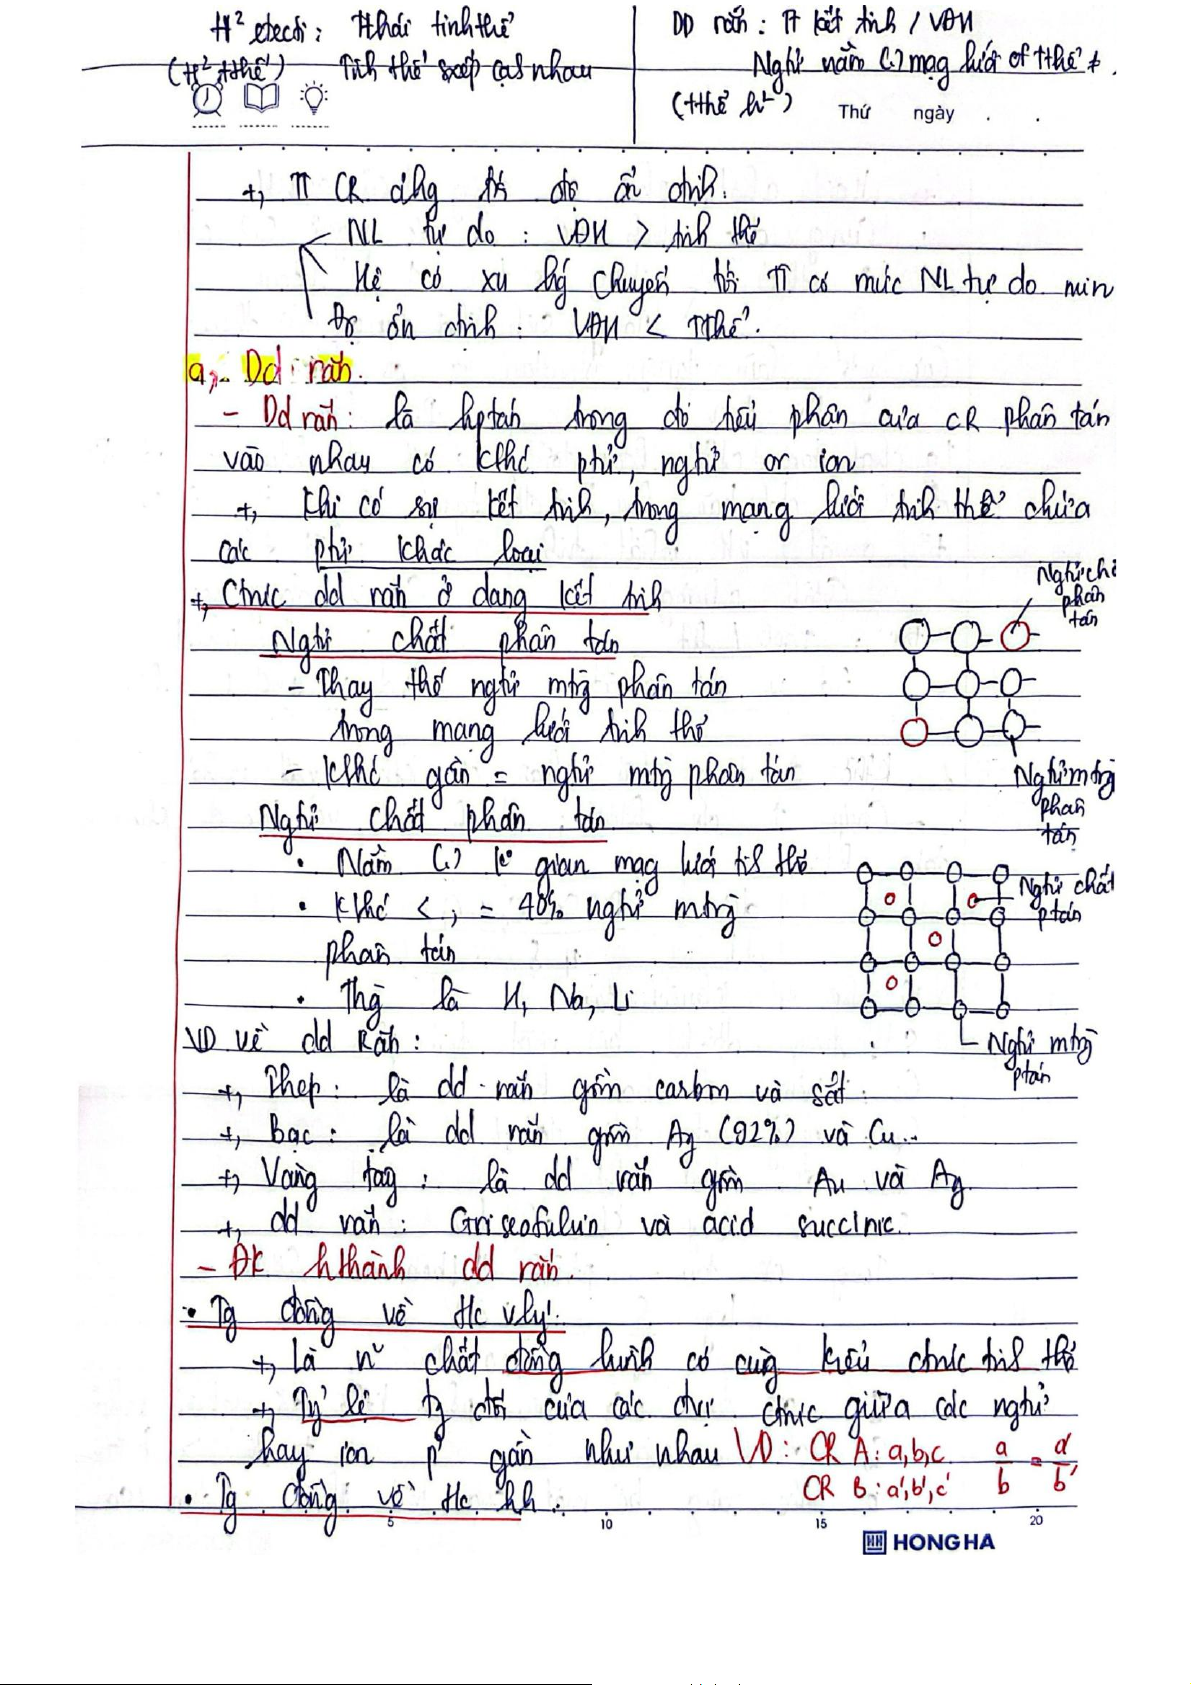 H² etecti: Tthái tinh thể
(H² tthể) Tinh thể xếp cạnh nhau
DD rắn: TT kết tinh / VĐH
Nghtử nằm (-) mạg lưới of tthể ≠.
(tthể h²) Thứ ngày . .
+, TT CR ứng tới độ ổn định.
NL tự do: VĐH > tinh thể
Hệ có xu hướg chuyển tới TT có mức NL tự do min
Độ ổn định: VĐH < TTthể.
a, Dd rắn.
- Dd rắn: là hptán trong đó tiểu phân của CR phân tán
vào nhau có kthc phtử, nghtử or ion
+, Khi có sự kết tinh, trong mạng lưới tinh thể chứa
các phtử khác loại
+, Ctrúc dd rắn ở dạng kết tinh
Nghtử chất phân tán
- Thay thế nghtử mtrg phân tán
trong mạng lưới tinh thể
- Kthc gần = nghtử mtrg phân tán
Nghtử chất
phân
tán
Nghtử mtrg
phân
tán
Nghtử chất phân tán
• Nằm (-) k° gian mạg lưới tinh thể
• Kthc <, = 40% nghtử mtrg
phân tán
• Thg là H, Na, Li
Nghtử chất
ptán
Nghtử mtrg
ptán
VD về dd Rắn:
+, Thép: là dd rắn gồm carbon và sắt.
+, Bạc: là dd rắn gồm Ag (92%) và Cu...
+, Vàng tây: là dd rắn gồm Au và Ag
+, dd rắn: Griseofulvin và acid succinic.
- ĐK hthành dd rắn.
• Tg đồng về tc vlý:
+, Là n~ chất đồng hình có cùng kiểu ctrúc tinh thể
+, Tỷ lệ tg đối của các đvị ctrúc giữa các nghtử
hay ion p² gần như nhau VD: CR A: a,b,c. a/b = a'/b'
CR B: a',b',c'
• Tg đồng về tc hh.
5 10 15 20
HONG HA